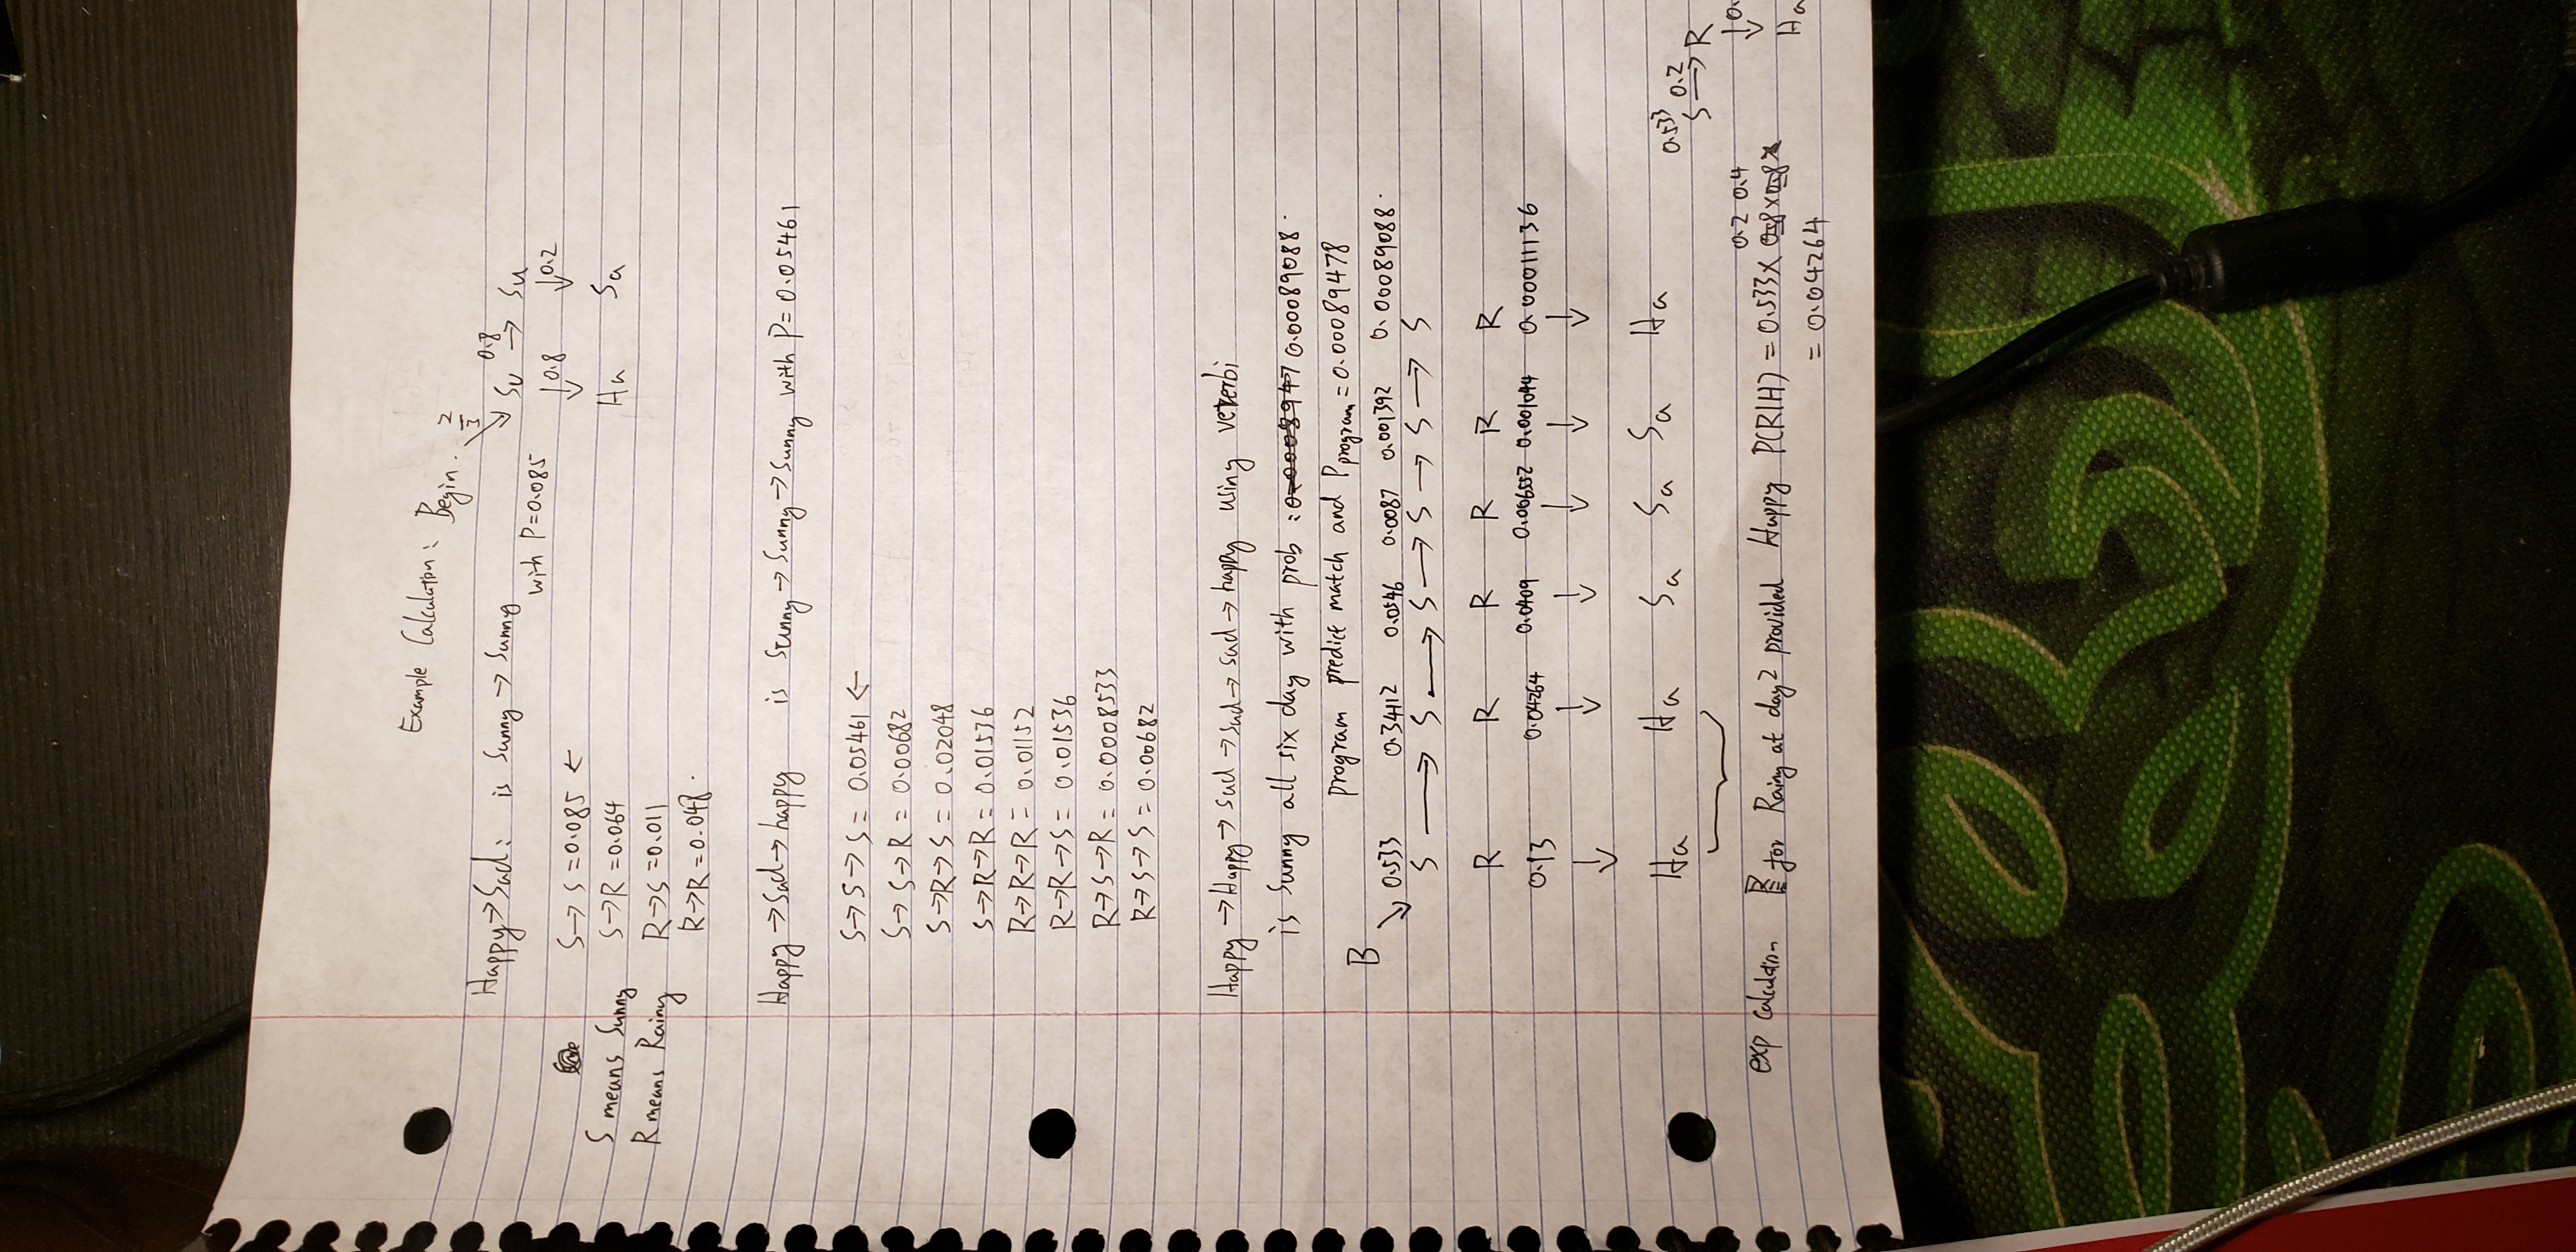 Example Calculation: Begin. 2/3
0.8
Happy → Sad: is Sunny → Sunny
Su → Su
with P=0.085
↓0.8 ↓0.2
Ha Sa
S → S = 0.085 ←
S means Sunny S → R = 0.064
R means Rainy R → S = 0.011
R → R = 0.048.
Happy → Sad → happy is Sunny → Sunny → Sunny with P = 0.05461
S → S → S = 0.05461 ←
S → S → R = 0.00682
S → R → S = 0.02048
S → R → R = 0.01536
R → R → R = 0.01152
R → R → S = 0.01536
R → S → R = 0.0008533
R → S → S = 0.00682
Happy → Happy → sad → sad → sad → happy using veterbi
is Sunny all six day with prob : 0.0008947 0.00089088.
program predict match and Pprogram = 0.00089478
B
0.533 0.34112 0.0546 0.0087 0.001392 0.00089088.
S → S → S → S → S → S
R R R R R R
0.13 0.04264 0.0409 0.006552 0.001044 0.00011136
↓ ↓ ↓ ↓ ↓ ↓
Ha Ha Sa Sa Sa Ha
0.533 0.2
S → R
↓0.
Ha
0.2 0.4
exp calculation for Rainy at day 2 provided Happy P(R|H) = 0.533 × 0.8 × 0.8 ×
= 0.04264